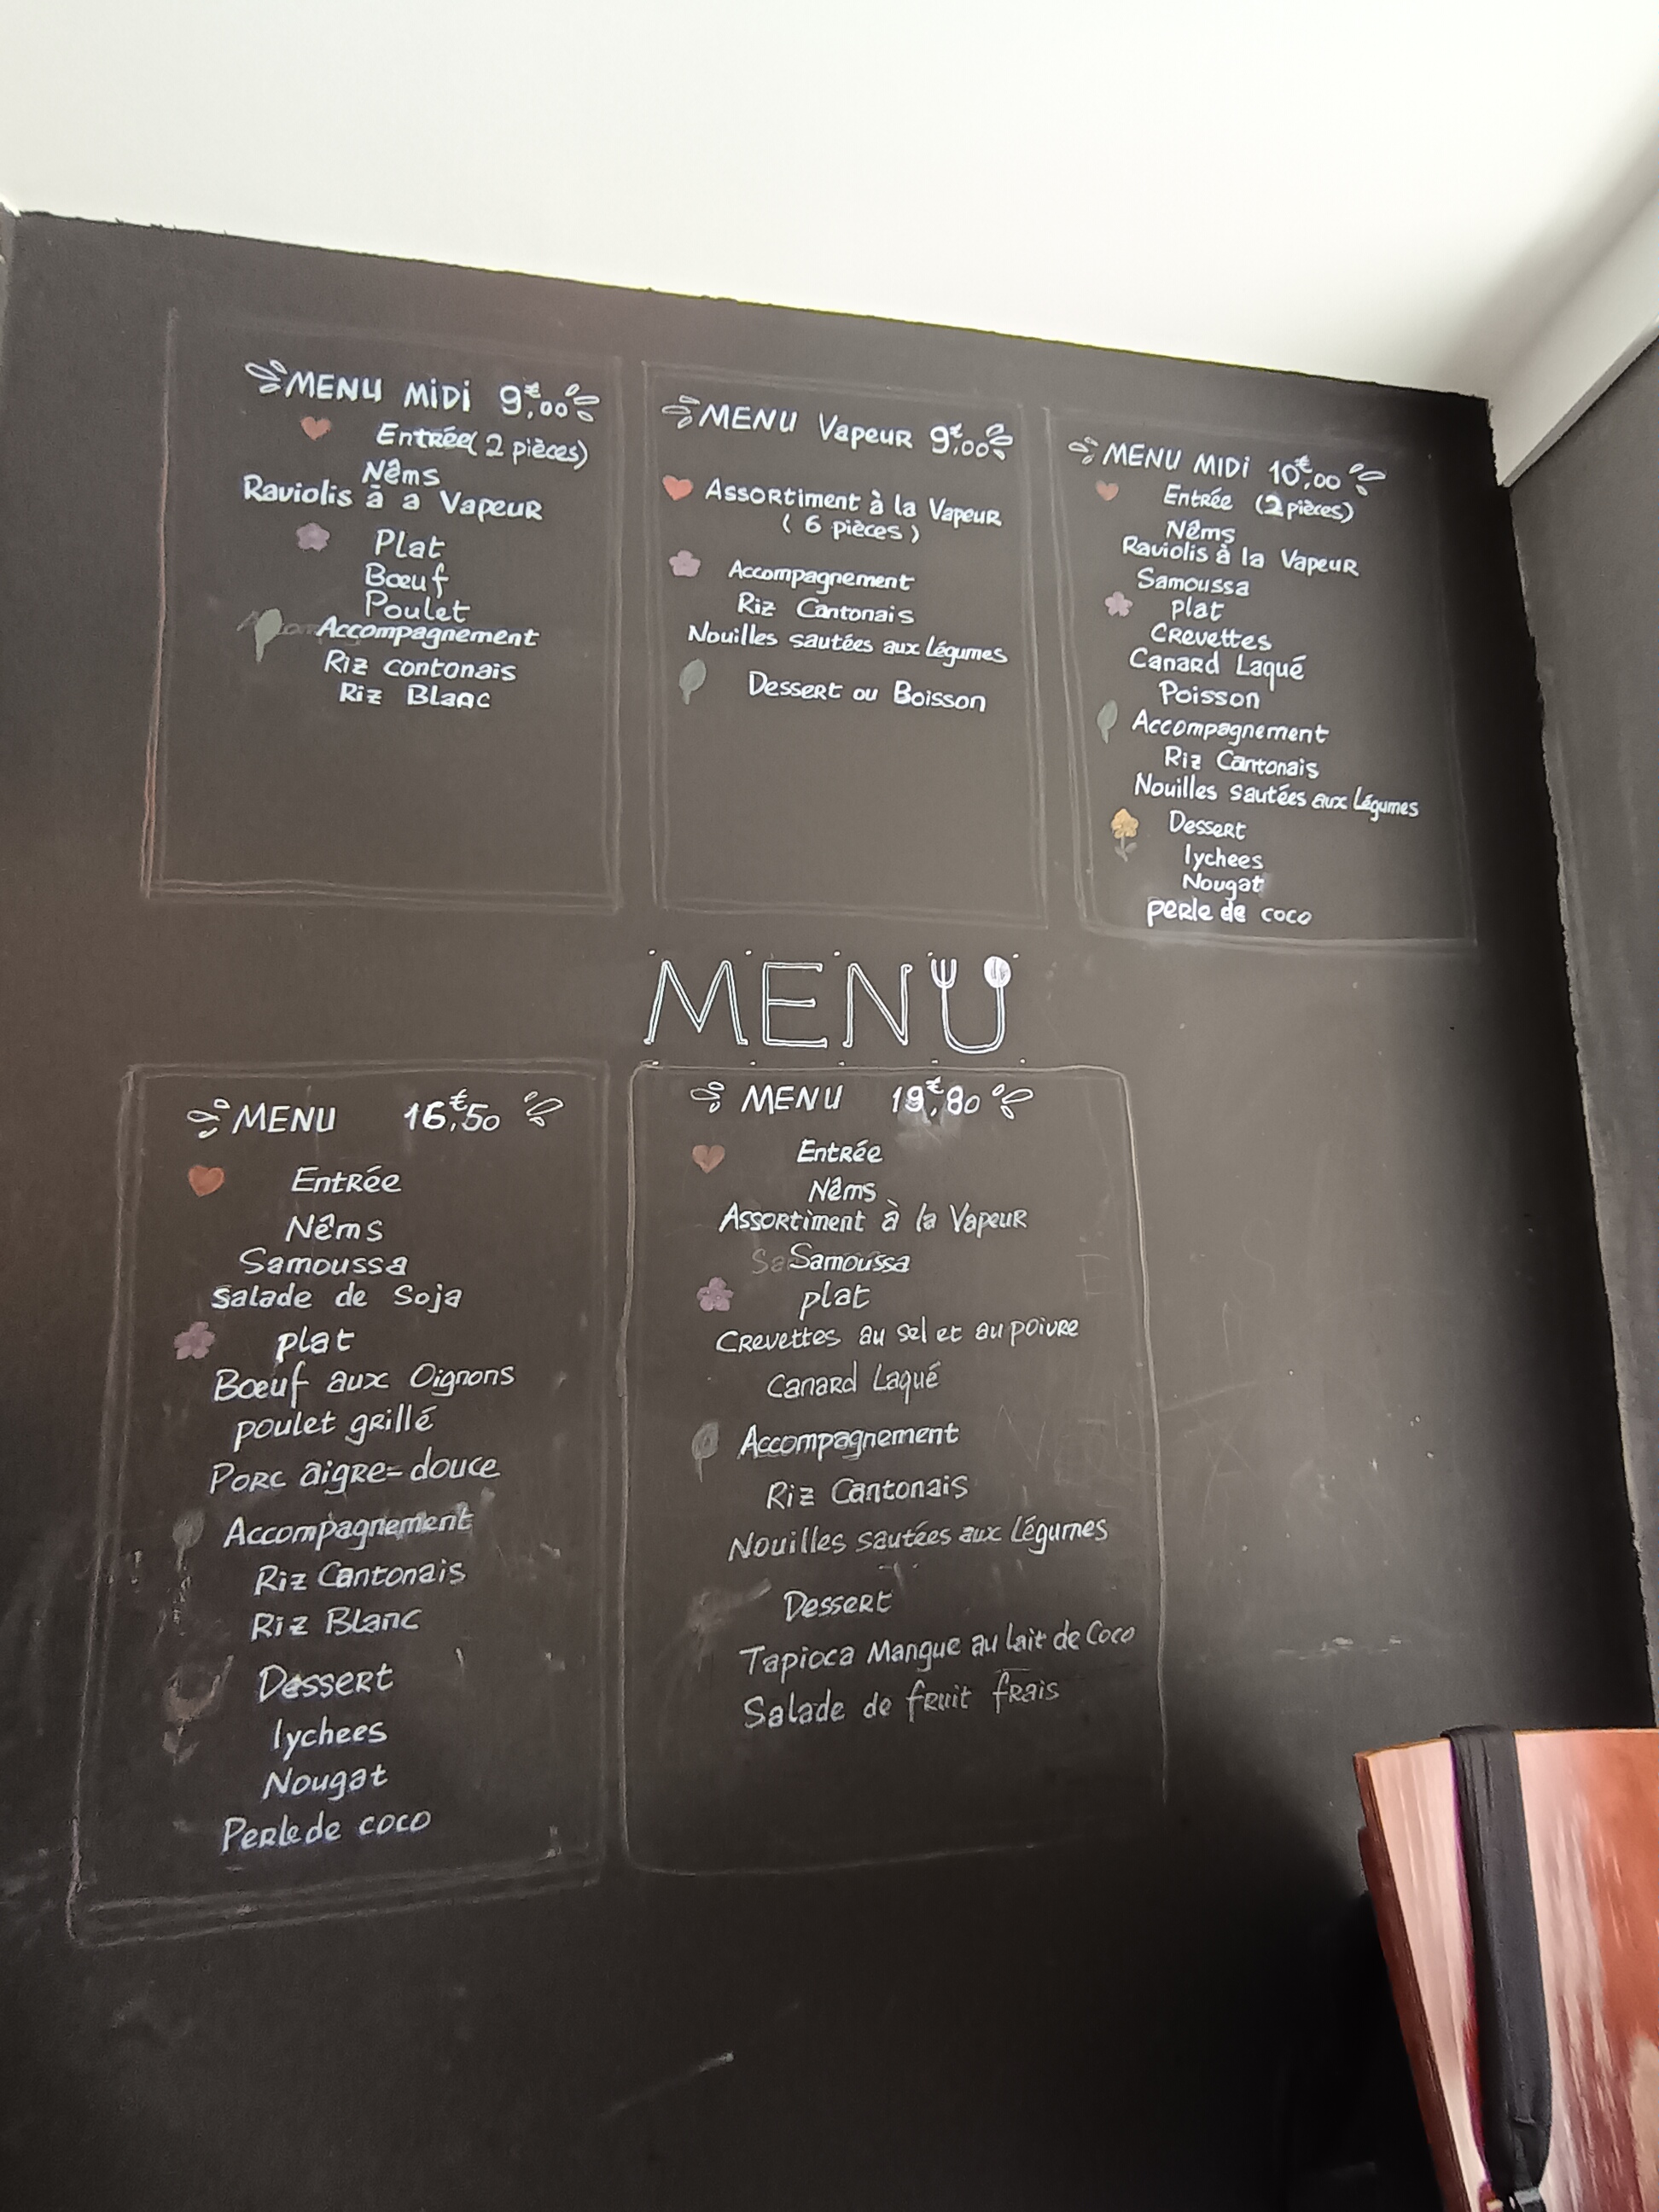 MENU MiDi 9€,00
Entrée (2 pièces)
Nêms
Raviolis à a Vapeur
Plat
Bœuf
Poulet
Accompagnement
Riz contonais
Riz Blanc
MENU Vapeur 9€,00
Assortiment à la Vapeur
( 6 pièces )
Accompagnement
Riz Cantonais
Nouilles sautées aux légumes
Dessert ou Boisson
MENU MiDi 10€,00
Entrée (2 pièces)
Nêms
Raviolis à la Vapeur
Samoussa
plat
Crevettes
Canard Laqué
Poisson
Accompagnement
Riz Cantonais
Nouilles sautées aux légumes
Dessert
lychees
Nougat
perle de coco
MENU
MENU 16€,50
Entrée
Nêms
Samoussa
salade de Soja
plat
Bœuf aux Oignons
poulet grillé
Porc aigre=douce
Accompagnement
Riz Cantonais
Riz Blanc
Dessert
lychees
Nougat
Perle de coco
MENU 19€,80
Entrée
Nêms
Assortiment à la Vapeur
Samoussa
plat
Crevettes au sel et au poivre
Canard Laqué
Accompagnement
Riz Cantonais
Nouilles sautées aux légumes
Dessert
Tapioca Mangue au lait de Coco
Salade de fruit frais